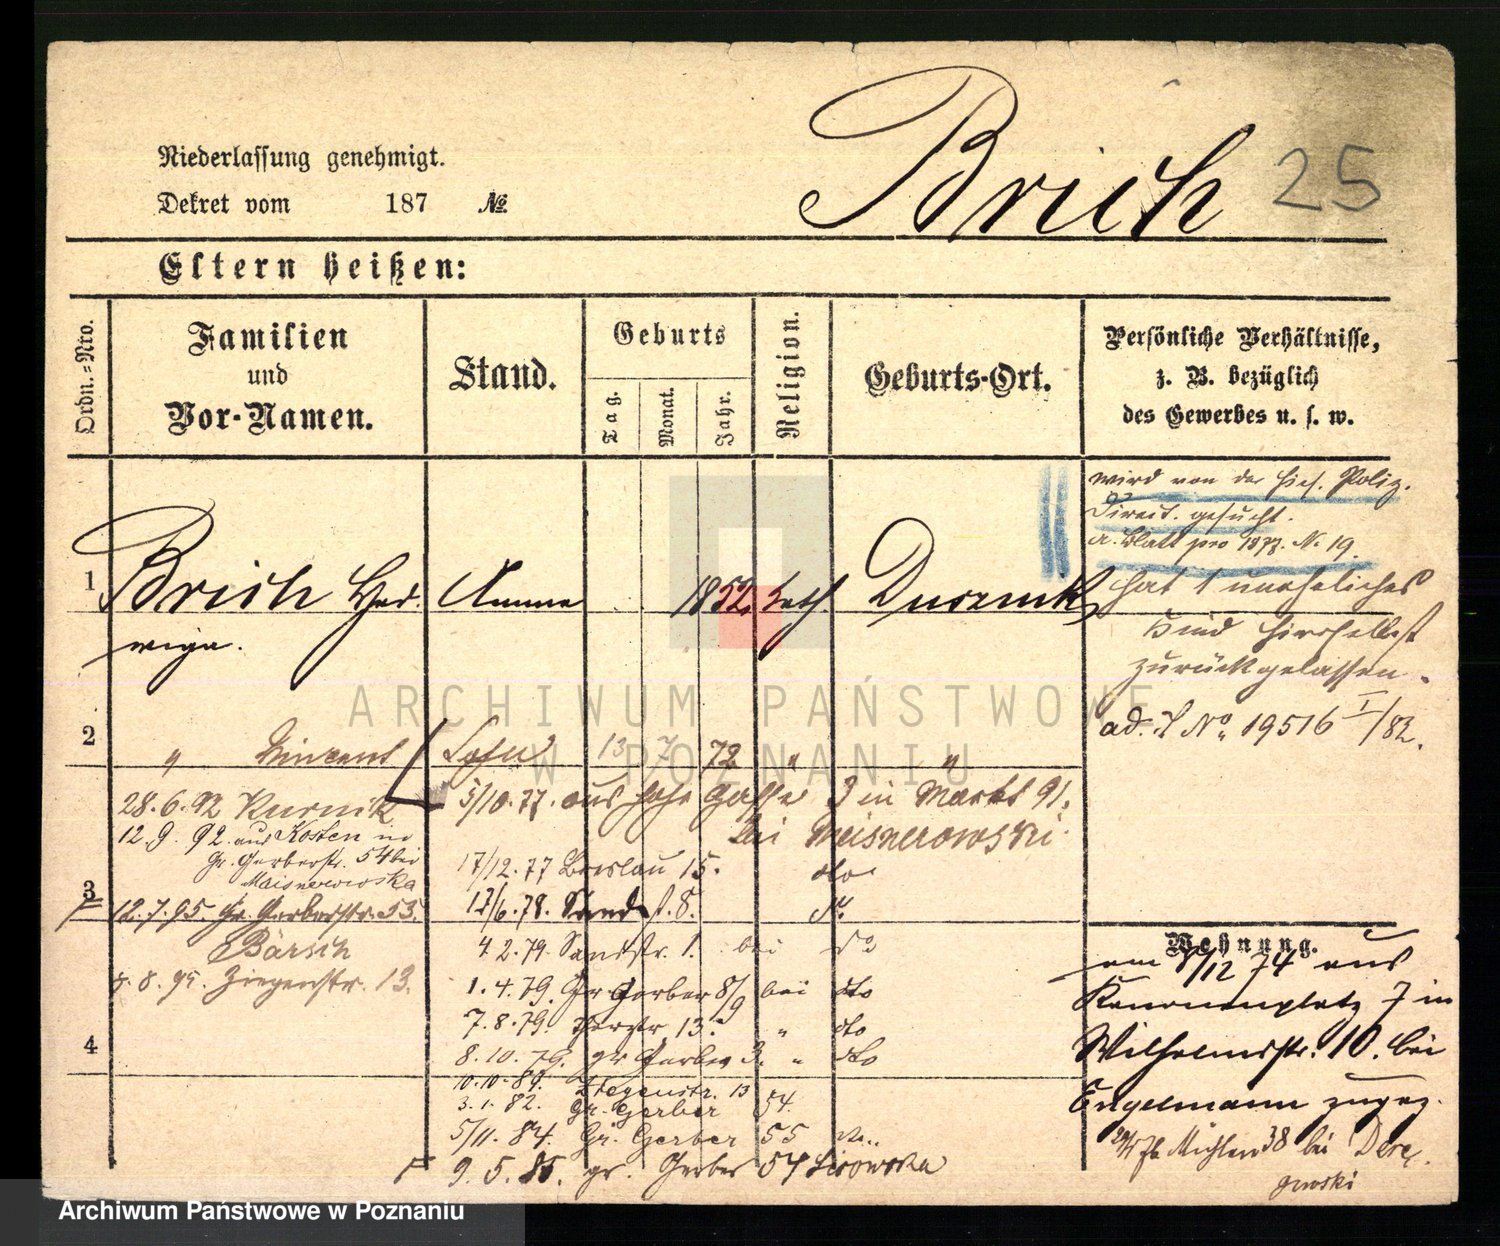 Niederlassung genehmigt.
Dekret vom 187 №
Brich 25
Eltern heißen:
Ordn.-Nro.
Familien
und
Vor-Namen.
Stand.
Geburts
Tag.
Monat.
Jahr.
Religion.
Geburts-Ort.
Persönliche Verhältnisse,
z. B. bezüglich
des Gewerbes u. s. w.
wird von der hies. Poliz.
Direct. gesucht.
pro 1877. N. 19.
1 Brich Hed- Amme 1852 kath. Dusznik
wiga.
hat 1 uneheliches
Kind hierselbst
zurückgelassen.
ad. N° 19516 I/82.
2 " Vincent Sohn 13 7 72 " "
28.6.92 Kurnik
12.9.92 aus Kosten in
Gr. Gerberstr. 54 bei
Maisnerowska
3 12.7.95. Gr. Gerberstr. 53.
Bärsch
4.8.95. Ziegenstr. 13.
4
5/10.77. aus hohe Gasse 3 in Markt 91.
bei Meisnerowski
17/12.77 Breslau 15. dto
12/6.78. Sandst. 8.
4.2.79. Sandstr. 1. bei do
1.4.79. Gr Gerber 8/9 bei dto
7.8.79. 13. " dto
8.10.79. gr Gerber 3. " dto
10.10.89. Ziegenstr. 13
3.1.82. Gr. Gerber 54.
5/11.84. Gr. Gerber 55
9.5.85. gr. Gerber 54 Lisowska
Wohnung.
am 8/12 74 aus
Kanonenplatz 7 in
Wilhelmsstr. 10. bei
Engelmann zugez.
Mühlen 38 bei Derez.
gowski
ARCHIWUM PAŃSTWOWE
W POZNANIU
Archiwum Państwowe w Poznaniu